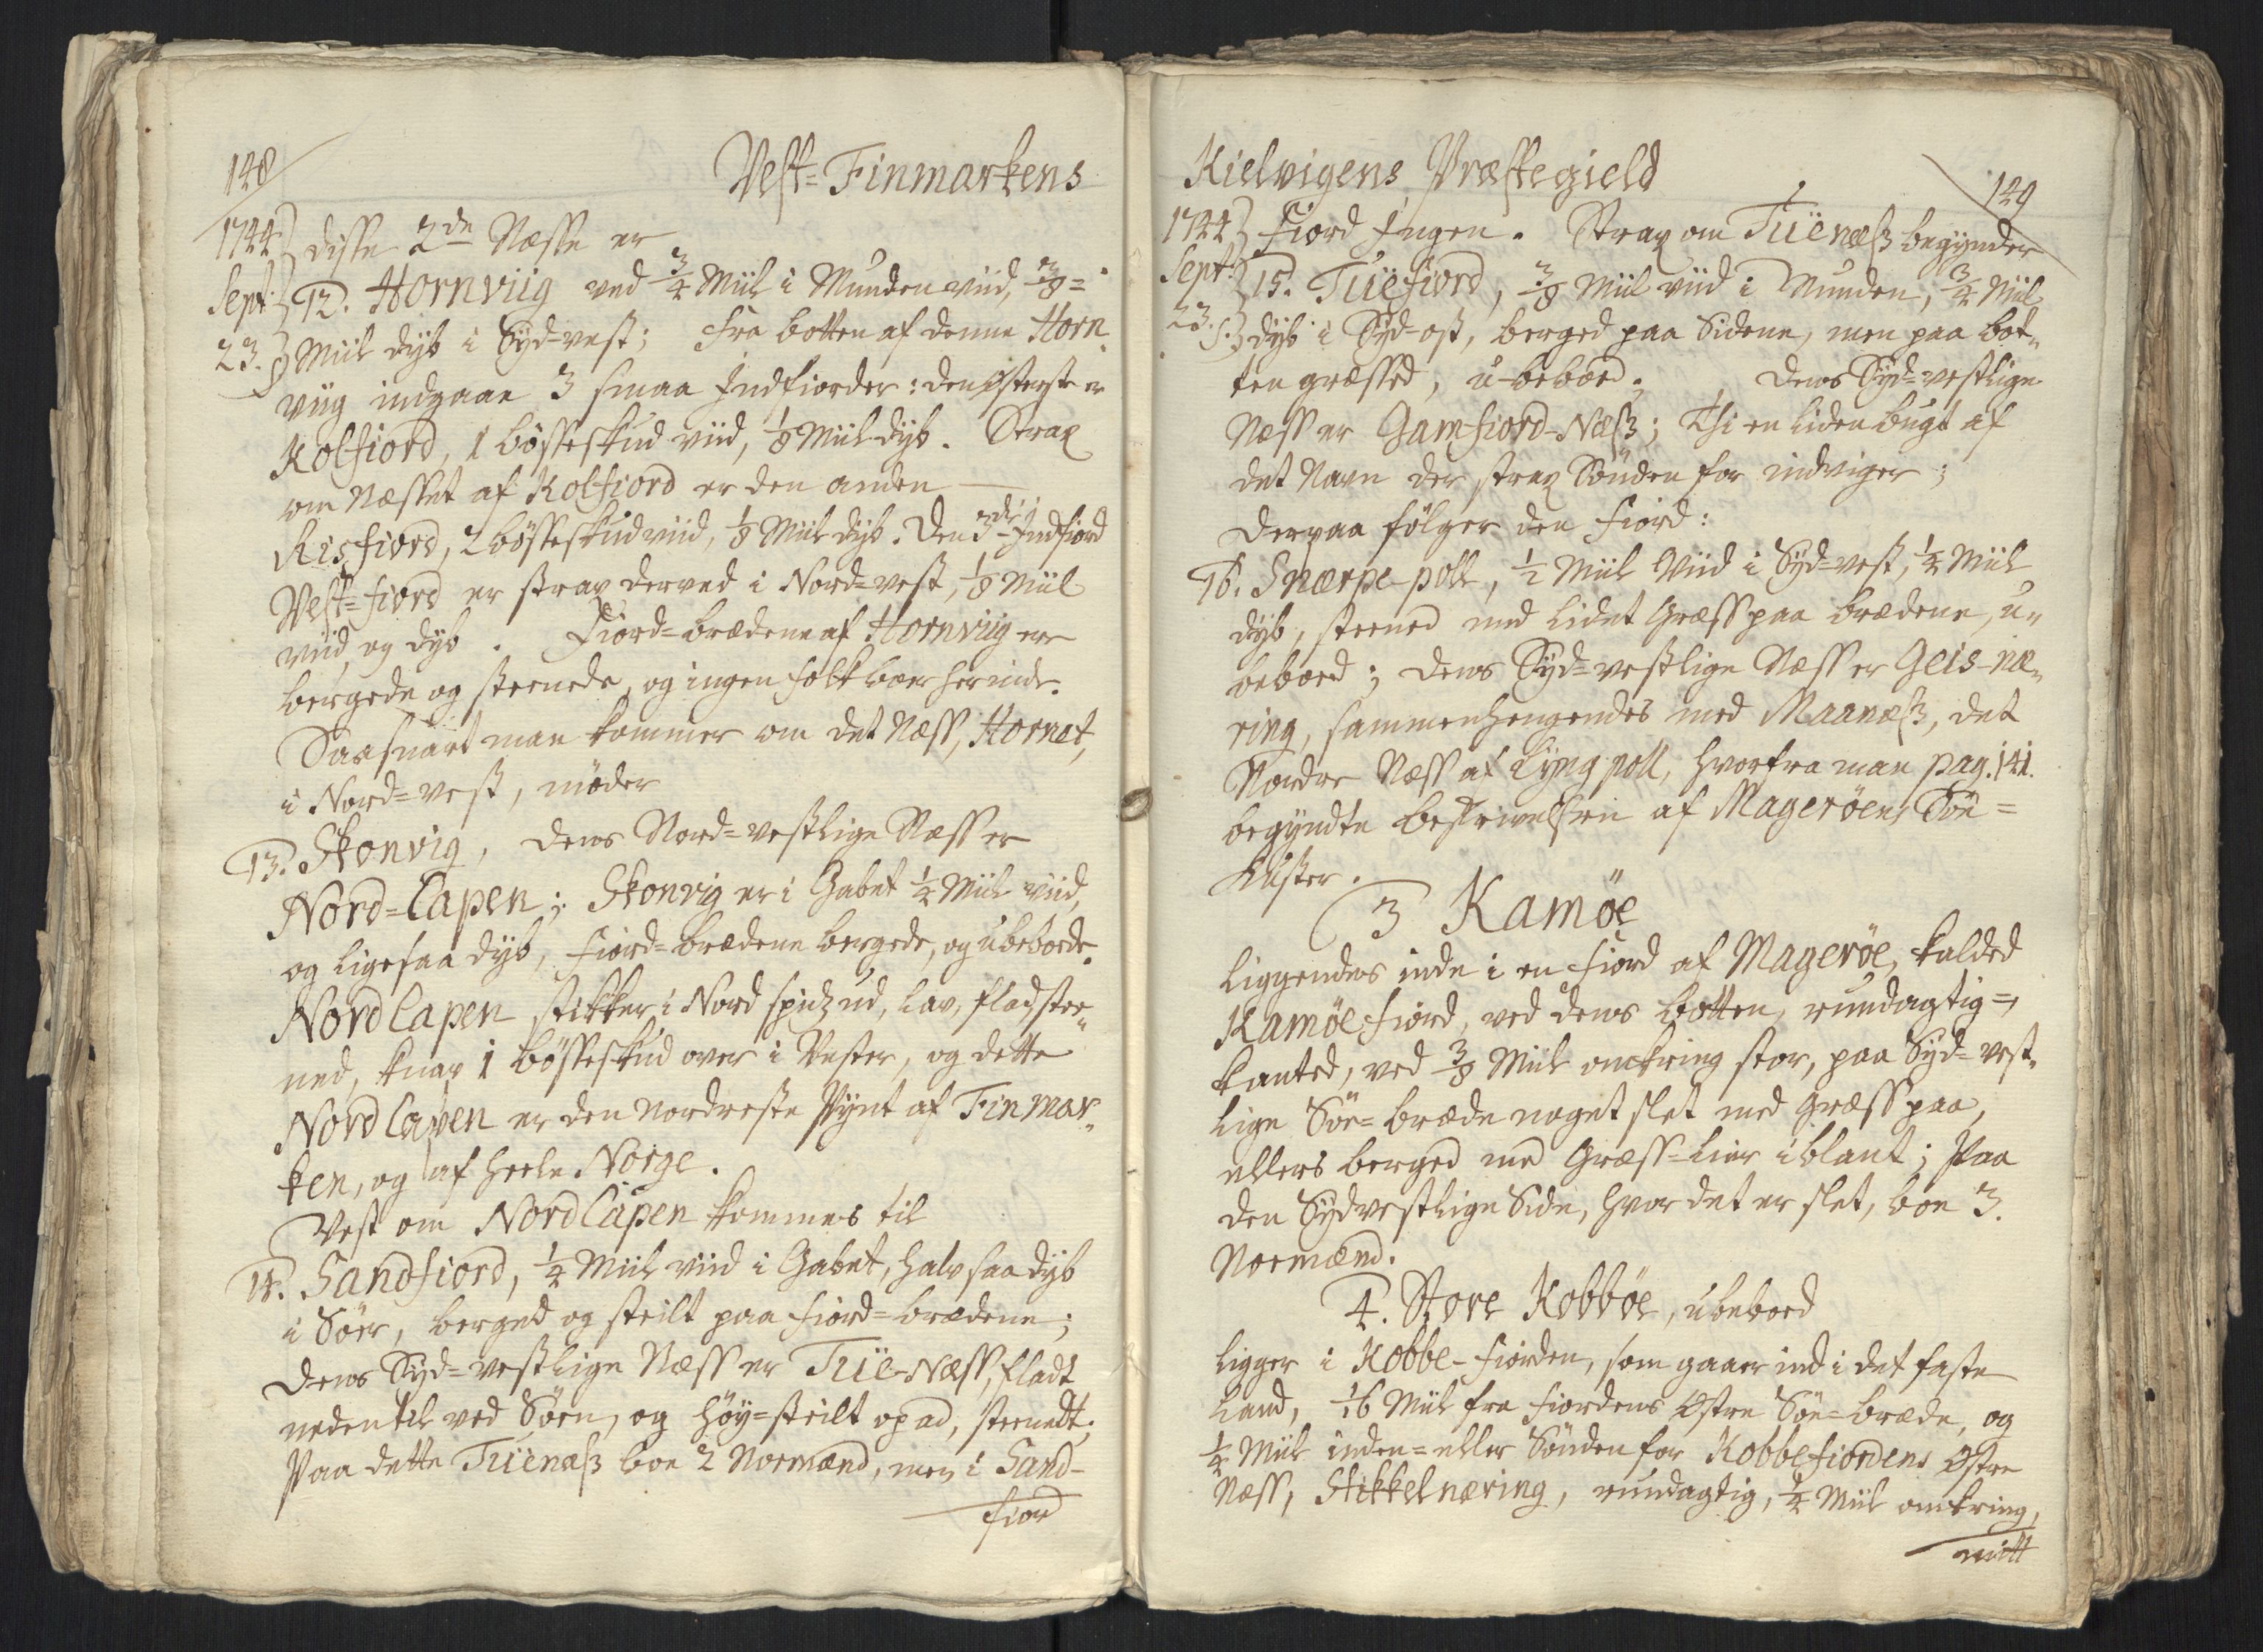 148
Vest=Finmarkens
1744
Sept:
23.
disse 2de Næsse er
12. Hornviig ved 3/4 Miil i Munden viid, 3/8=
Miil dyb i Syd-vest; Fra botten af denne Horn
viig indgaae 3 smaa Indfiorder: den østerste er
Kolfiord, 1 bösseskud viid, 1/8 Miil dyb. Strax
om Næsset af Kolfiord er den anden
Risfiord, 2 bösseskud viid, 1/8 Miil dyb. Den 3die Indfiord
Vest=fiord er strax derved i Nord=vest, 1/8 Miil
viid, og dyb. Fiord=brædene af Hornviig ere
bergede og steenede, og ingen folk boer herinde.
Saasnart man kommer om det Næss, Hornet,
i Nord=vest, møder
13. Skonvig, dens Nord=vestlige Næss er
Nord=Capen; Skonvig er i Gabet 1/4 Miil viid,
og ligesaa dyb, fiord=brædene bergede, og ubeboede.
Nord Capen stikker i Nord spidz ud, lav, flad, stee„
ned, knap 1 bösseskud over i Vester, og dette
Nord Capen er den nordreste Pynt af Finmar„
ken, og af heele Norge.
Vest om Nord Capen kommes til
14. Sandfiord, 1/4 Miil viid i Gabet, halv saa dyb
i Söer, berged og steilt paa fiord=brædene;
dens Syd=vestlige Næss er Tüe-Næss, fladt
nedentil ved Söen, og höy=steilt opad, steenedt;
Paa dette Tüenæss boe 2 Normænd, men i Sand-
fiord
Kielvigens Præstegield
149
1744
Sept:
23.
fiord Ingen. Strax om Tüenæss begynder
15. Tüefiord, 3/8 Miil viid i Munden, 3/4 Miil
dyb i Syd-ost, berged paa Sidene, men paa bot„
ten græssed, u-beboed; dens Syd=vestlige
Næss er Gamfiord-Næss; Thi en liden bugt af
det Navn der strax Sönden for indviger;
derpaa fölger den fiord:
16. Snærpe-poll, 1/2 Miil Viid i Syd=vest, 1/4 Miil
dyb, steened med lidet Græss paa brædene, u„
beboed; dens Syd=vestlige Næss er Geis-næ„
ring, sammenhengendes med Maanæss, det
Nordre Næss af Lyngpoll, hvorfra man pag. 141.
begyndte beskrivelsen af Mageröens Söe=
Kuster.
3 Kamöe
liggendes inde i en fiord af Mageröe, kalded
Kamöefiord, ved dens botten, rundagtig=,
kanted, ved 3/8 Miil omkring stor, paa Syd=vest„
lige Söe=bræde noget slet med Græss paa,
ellers berged med Græss=lier iblant; Paa
den Sydvestlige Side, hvor det er slet, boe 3.
Normænd.
4. Store Kobböe, ubeboed
ligger i Kobbe-fiorden, som gaaer ind i det faste
Land, 1/16 Miil fra fiordens Ostre Söe=bræde, og
1/4 Miil inden= eller Sönden for Kobbefiordens Ostre
Næss, Stikkelnæring, rundagtig, 1/4 Miil omkring,
mitt